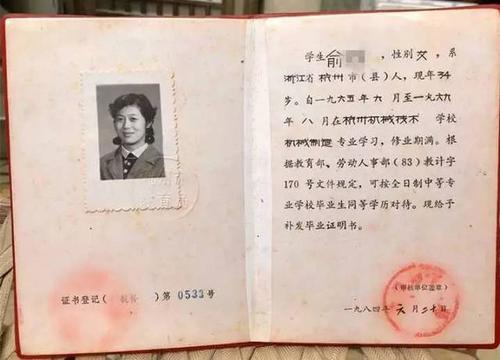 学生俞 ，性别女，系
浙江省杭州市（县）人，现年34
岁。自一九六五年九月至一九六九
年八月在杭州机械技术学校
机械制造专业学习，修业期满。根
据教育部、劳动人事部（83）教计字
170号文件规定，可按全日制中等专
业学校毕业生同等学历对待。现给予
补发毕业证明书。
（审核单位盖章）
一九八四年六月二十日
证书登记（ ）第0533号